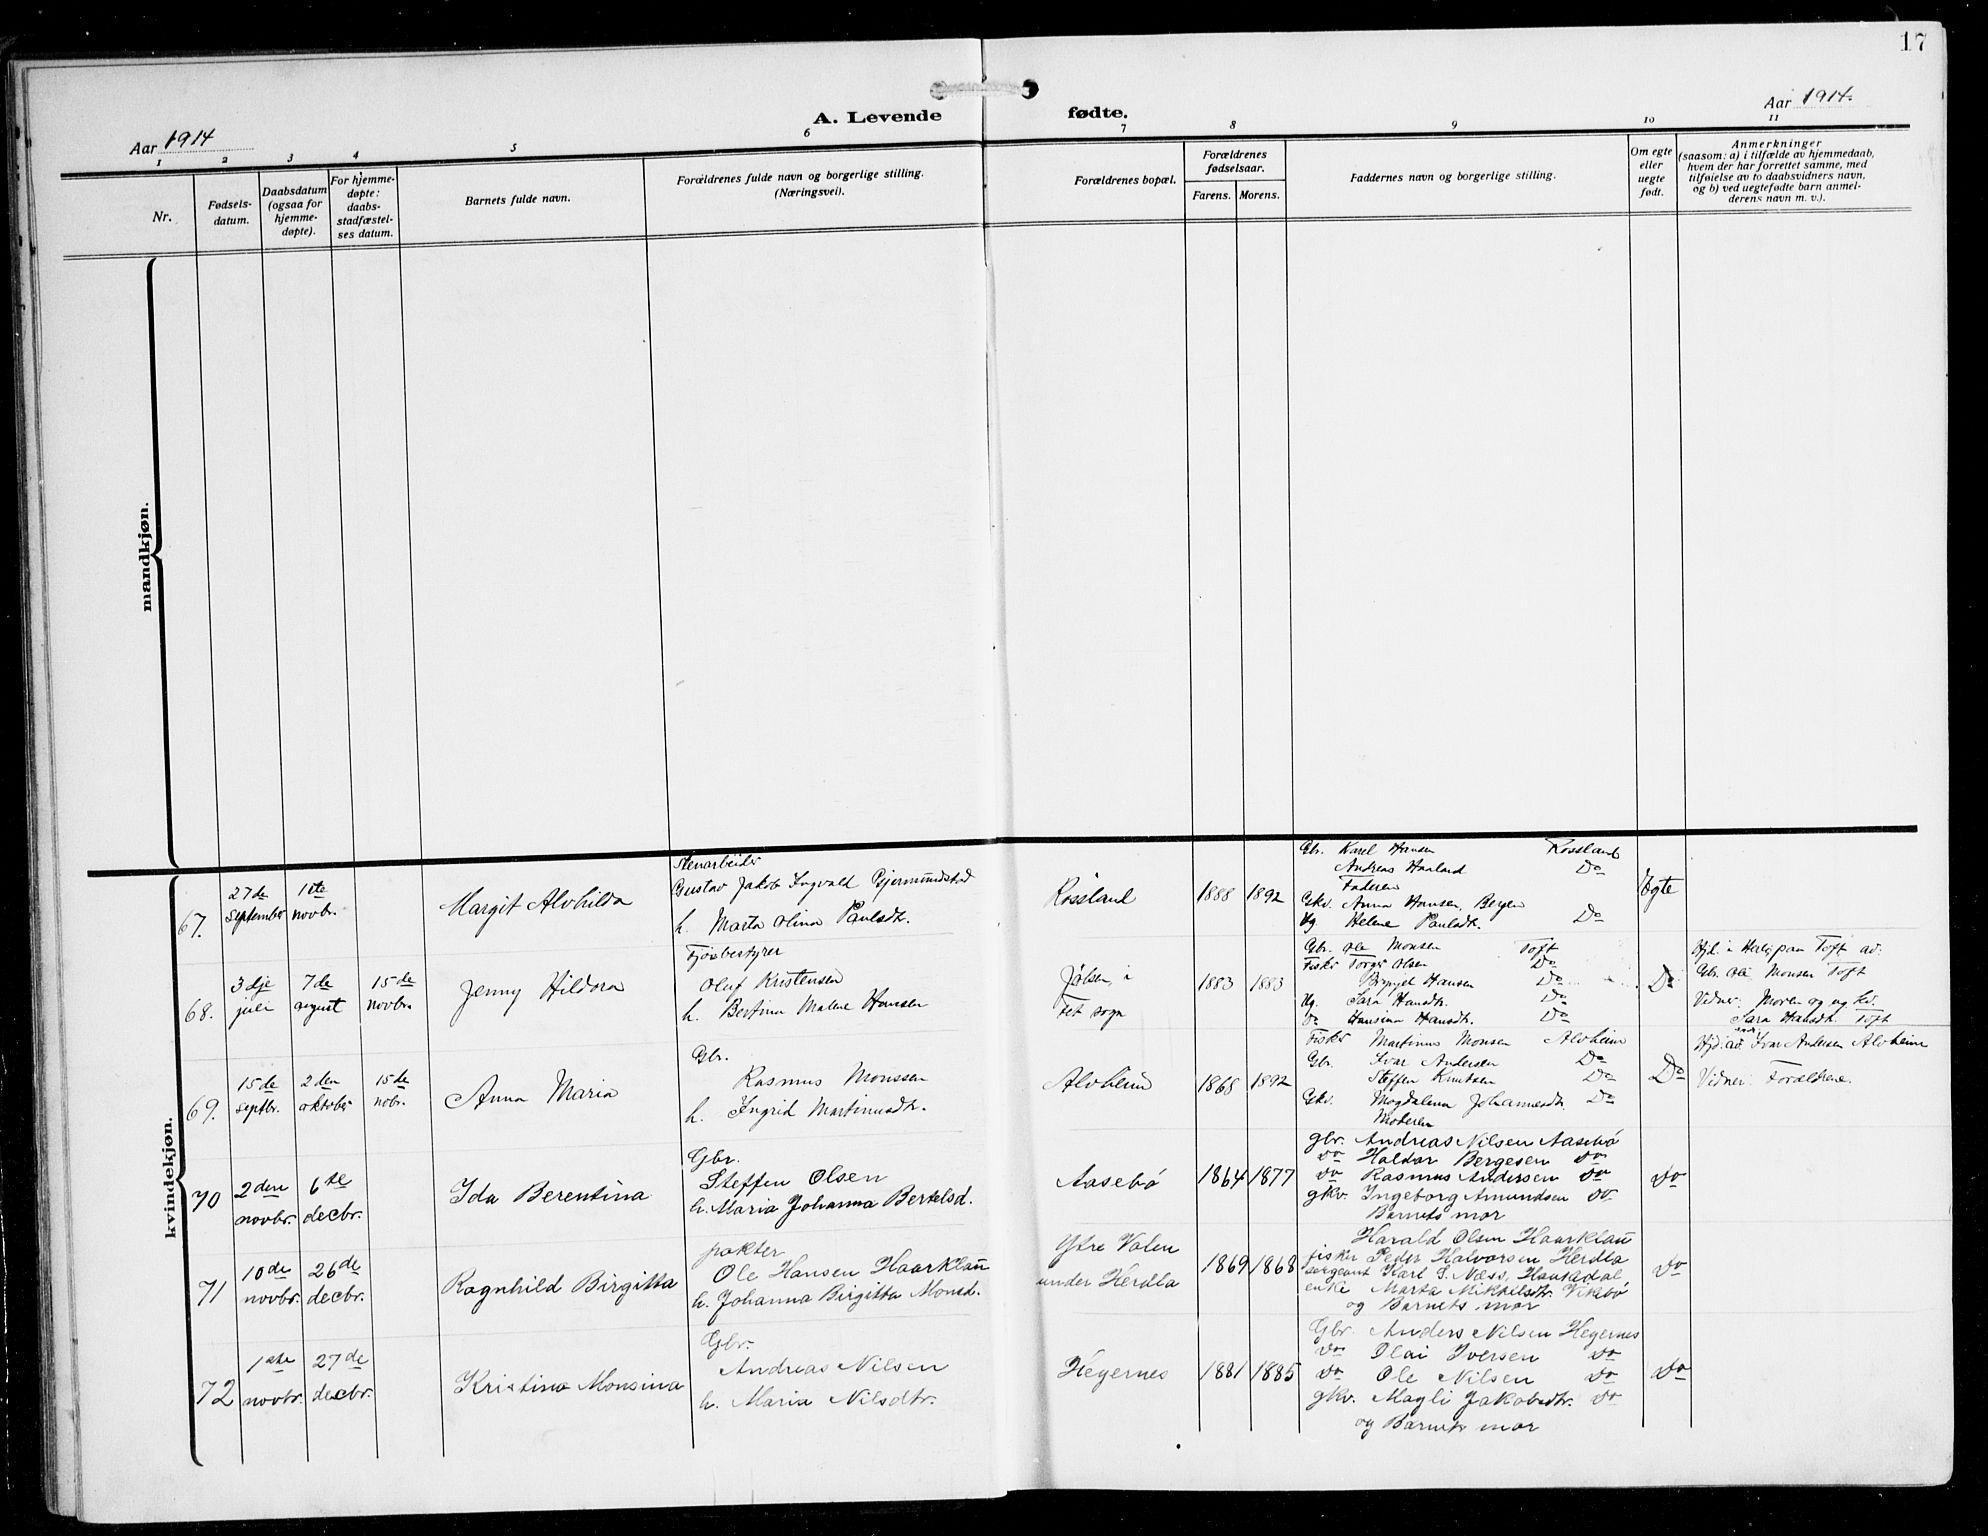 17
Aar 1914
A. Levende fødte.
Aar 1914.
1 2 3 4 5 6 7 8 9 10 11
Nr.
Fødsels-
datum.
Daabsdatum
(ogsaa for
hjemme-
døpte).
For hjemme-
døpte:
daabs-
stadfæstel-
ses datum.
Barnets fulde navn.
Forældrenes fulde navn og borgerlige stilling.
(Næringsvei).
Forældrenes bopæl.
Forældrenes
fødselsaar.
Farens. Morens.
Faddernes navn og borgerlige stilling.
Om egte
eller
uegte
født.
Anmerkninger
(saasom: a) i tilfælde av hjemmedaab,
hvem der har forrettet samme, med
tilføielse av to daabsvidners navn,
og b) ved uegtefødte barn anmel-
derens navn m. v.).
mandkjøn.
kvindekjøn.
67.
27de
September
1ste
novbr.
Margit Alvhilda
Stenarbeider
Gustav Jakob Ingvald Gjermundstad
h. Marta Olina Paulsdt.
Rossland
1888 1892
Gbr. Karl Hansen Rossland
Andreas Haaland Do
Faderen
Gkv. Anna Hansen, Bergen
Ug. Helene Paulsdt. Do
Egte
68.
3dje
juli
7de
august
15de
novbr.
Jenny Hildora
Fjøsbestyrer
Oluf Kristensen
h. Bertina Malene Hansen
Jølsen i
Fet sogn
1883 1883
Gbr. Ole Monsen Toft
Fisker Torger Olsen Do
Brynjel Hansen Do
Ug. Sara Hansdt. Do
Do Hansina Hansdt. Do
Do
Hjd. i Herlø paa Toft av:
Gbr. Ole Monsen Toft
Vidner: Moren og ug kv.
Sara Hansdt. Toft
69.
15de
septbr.
2den
oktober
15de
nobr.
Anna Maria
Gbr.
Rasmus Monssen
h. Ingrid Martinusdt.
Alvheim
1868 1892
Fisker Martinus Monsen Alvheim
Gbr. Ivar Andersen Do
Steffen Knutsen Do
Gkv. Magdalena Johannesdt. Do
Moderen
Do
Hjd: av Ivar Andersen Alvheim
Vidner: Forældrene.
70
2den
novbr.
6te
decbr.
Ida Berentina
Gbr.
Steffen Olsen
h. Maria Johanna Bertelsd.
Aasebø
1864 1877
gbr. Andreas Nilsen Aasebø
do Haldor Bergesen do
do Rasmus Andersen do
gkv. Ingeborg Amundsen do
Barnets mor
do
71
10de
novbr.
26de
decbr.
Ragnhild Birgitta
pakter
Ole Hansen Haarklau
h. Johanna Birgitta Monsd.
Ytre Valen
under Herdla
1869 1868
Harald Olsen Haarklau
fisker Peder Halvorsen Herdla
sergeant Karl S. Næss, Haukedal,
enke Marta Mikkelsdtr. Vikebø
og Barnets mor
do
72
1ste
novbr.
27de
decbr.
Kristina Monsina
Gbr.
Andreas Nilsen
h. Maria Nilsdtr.
Hegernes
1881 1885
Gbr. Anders Nilsen Hegernes
do Olai Iversen do
do Ole Nilsen do
gkv. Magli Jakobsdtr. do
og Barnets mor
do